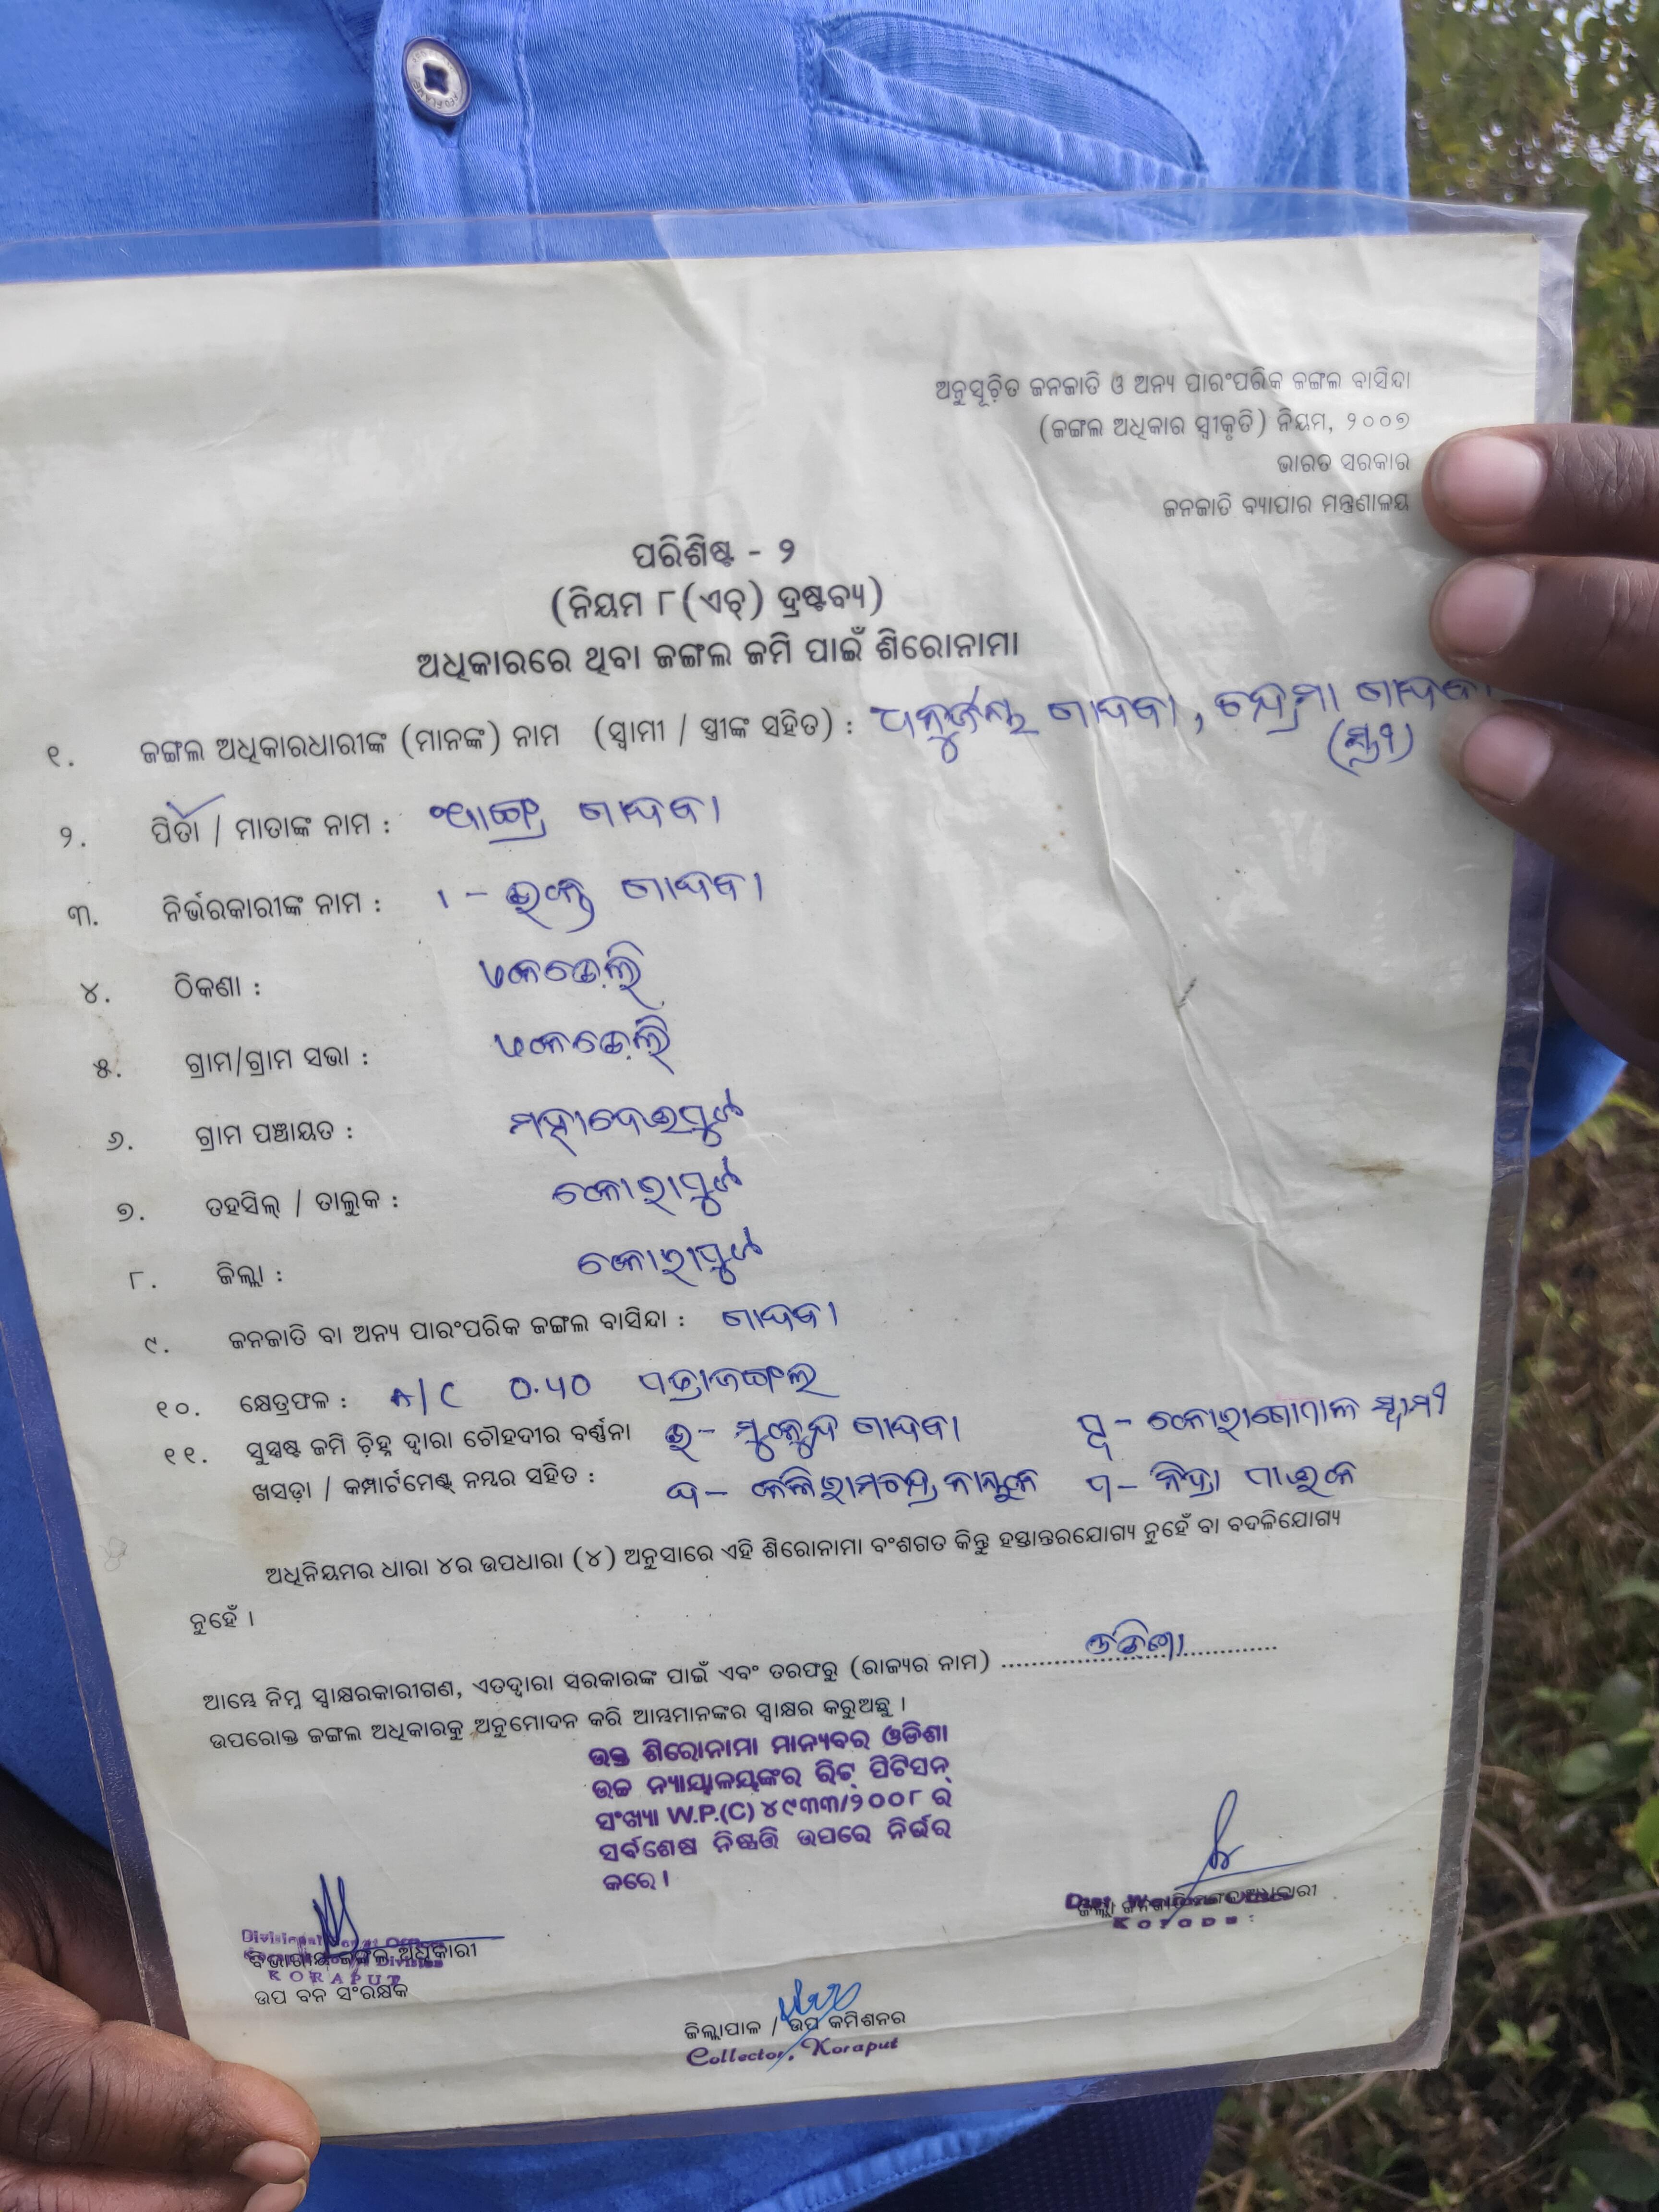 ଅନୁସୂଚିତ ଜନଜାତି ଓ ଅନ୍ୟ ପାରଂପରିକ ଜଙ୍ଗଲ ବାସିନ୍ଦା
(ଜଙ୍ଗଲ ଅଧିକାର ସ୍ୱୀକୃତି) ନିୟମ, ୨୦୦୭
ଭାରତ ସରକାର
ଜନଜାତି ବ୍ୟାପାର ମନ୍ତ୍ରଣାଳୟ
ପରିଶିଷ୍ଟ - ୨
(ନିୟମ ୮(ଏଚ୍) ଦ୍ରଷ୍ଟବ୍ୟ)
ଅଧିକାରରେ ଥିବା ଜଙ୍ଗଲ ଜମି ପାଇଁ ଶିରୋନାମା
୧. ଜଙ୍ଗଲ ଅଧିକାରଧାରୀଙ୍କ (ମାନଙ୍କ) ନାମ (ସ୍ୱାମୀ / ସ୍ତ୍ରୀଙ୍କ ସହିତ) : ଗାଦବା, ଚନ୍ଦ୍ରମା ଗାଦବା
(ସ୍ତ୍ରୀ)
୨. ପିତା / ମାତାଙ୍କ ନାମ : ଗାଦବା
୩. ନିର୍ଭରକାରୀଙ୍କ ନାମ : ୧ - ଗାଦବା
୪. ଠିକଣା :
୫. ଗ୍ରାମ/ଗ୍ରାମ ସଭା :
୬. ଗ୍ରାମ ପଞ୍ଚାୟତ : ମହାଦେଇପୁଟ
୭. ତହସିଲ୍ / ତାଲୁକ : କୋରାପୁଟ
୮. ଜିଲ୍ଲା : କୋରାପୁଟ
୯. ଜନଜାତି ବା ଅନ୍ୟ ପାରଂପରିକ ଜଙ୍ଗଲ ବାସିନ୍ଦା : ଗାଦବା
୧୦. କ୍ଷେତ୍ରଫଳ : A/C 0.40 ପତ୍ରାଜଙ୍ଗଲ
୧୧. ସୁସ୍ପଷ୍ଟ ଜମି ଚିହ୍ନ ଦ୍ୱାରା ଚୌହଦୀର ବର୍ଣ୍ଣନା ଉ - ମୁକୁନ୍ଦ ଗାଦବା ପୂ -
ଖସଡ଼ା / କମ୍ପାର୍ଟମେଣ୍ଟ୍ ନମ୍ବର ସହିତ : ଦ - ପ -
ଅଧିନିୟମର ଧାରା ୪ର ଉପଧାରା (୪) ଅନୁସାରେ ଏହି ଶିରୋନାମା ବଂଶଗତ କିନ୍ତୁ ହସ୍ତାନ୍ତରଯୋଗ୍ୟ ନୁହେଁ ବା ବଦଳିଯୋଗ୍ୟ
ନୁହେଁ ।
ଆମ୍ଭେ ନିମ୍ନ ସ୍ୱାକ୍ଷରକାରୀଗଣ, ଏତଦ୍ୱାରା ସରକାରଙ୍କ ପାଇଁ ଏବଂ ତରଫରୁ (ରାଜ୍ୟର ନାମ) ଓଡିଶା
ଉପରୋକ୍ତ ଜଙ୍ଗଲ ଅଧିକାରକୁ ଅନୁମୋଦନ କରି ଆମ୍ଭମାନଙ୍କର ସ୍ୱାକ୍ଷର କରୁଅଛୁ ।
ଉକ୍ତ ଶିରୋନାମା ମାନ୍ୟବର ଓଡିଶା
ଉଚ୍ଚ ନ୍ୟାୟାଳୟଙ୍କର ରିଟ୍ ପିଟିସନ୍
ସଂଖ୍ୟା W.P.(C) ୪୯୩୩/୨୦୦୮ ର
ସର୍ବଶେଷ ନିଷ୍ପତ୍ତି ଉପରେ ନିର୍ଭର
କରେ ।
ଜିଲ୍ଲା ଅଧିକାରୀ
ବିଭାଗୀୟ ଜଙ୍ଗଲ ଅଧିକାରୀ
KORAPUT
ଉପ ବନ ସଂରକ୍ଷକ
ଜିଲ୍ଲାପାଳ / ଉପ କମିଶନର
Collector, Koraput